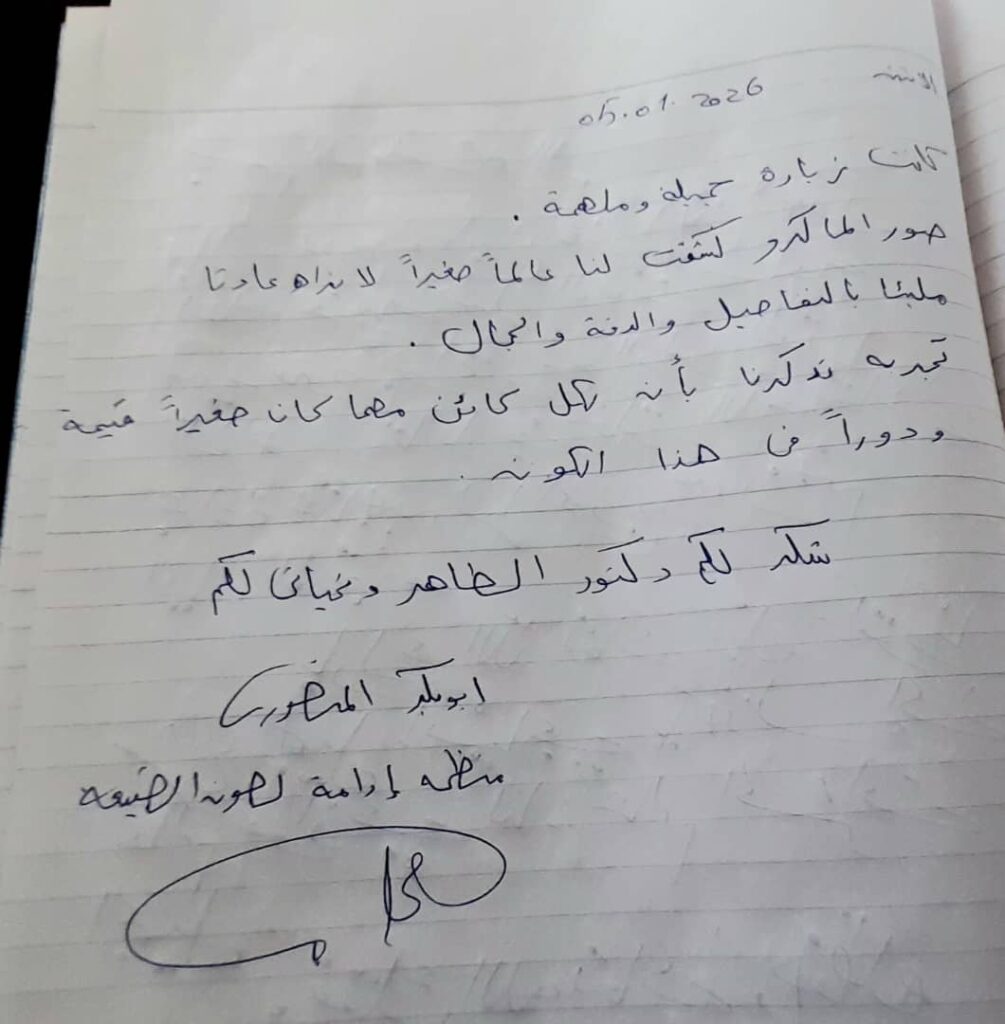 الاثنين 05.01.2026
كانت زيارة جميلة وملهمة .
صور الماكرو كشفت لنا عالماً صغيراً لا نراه عادتا
مليئا بالتفاصيل والدقة والجمال .
تجربه تذكرنا بأن لكل كائن مهما كان صغيراً قيمة
ودوراً في هذا الكون .
شكر لكم دكتور الطاهر وتحياتي لكم
ابوبكر المنصوري
منظمه إدامة لصون الطبيعه